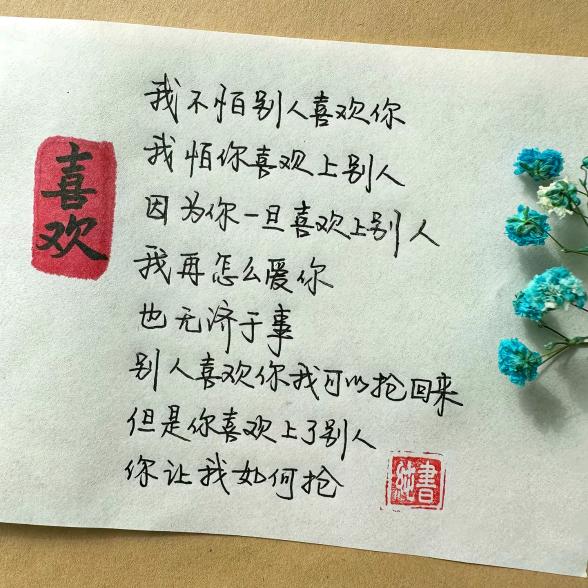 喜欢
我不怕别人喜欢你
我怕你喜欢上别人
因为你一旦喜欢上别人
我再怎么爱你
也无济于事
别人喜欢你我可以抢回来
但是你喜欢上了别人
你让我如何抢